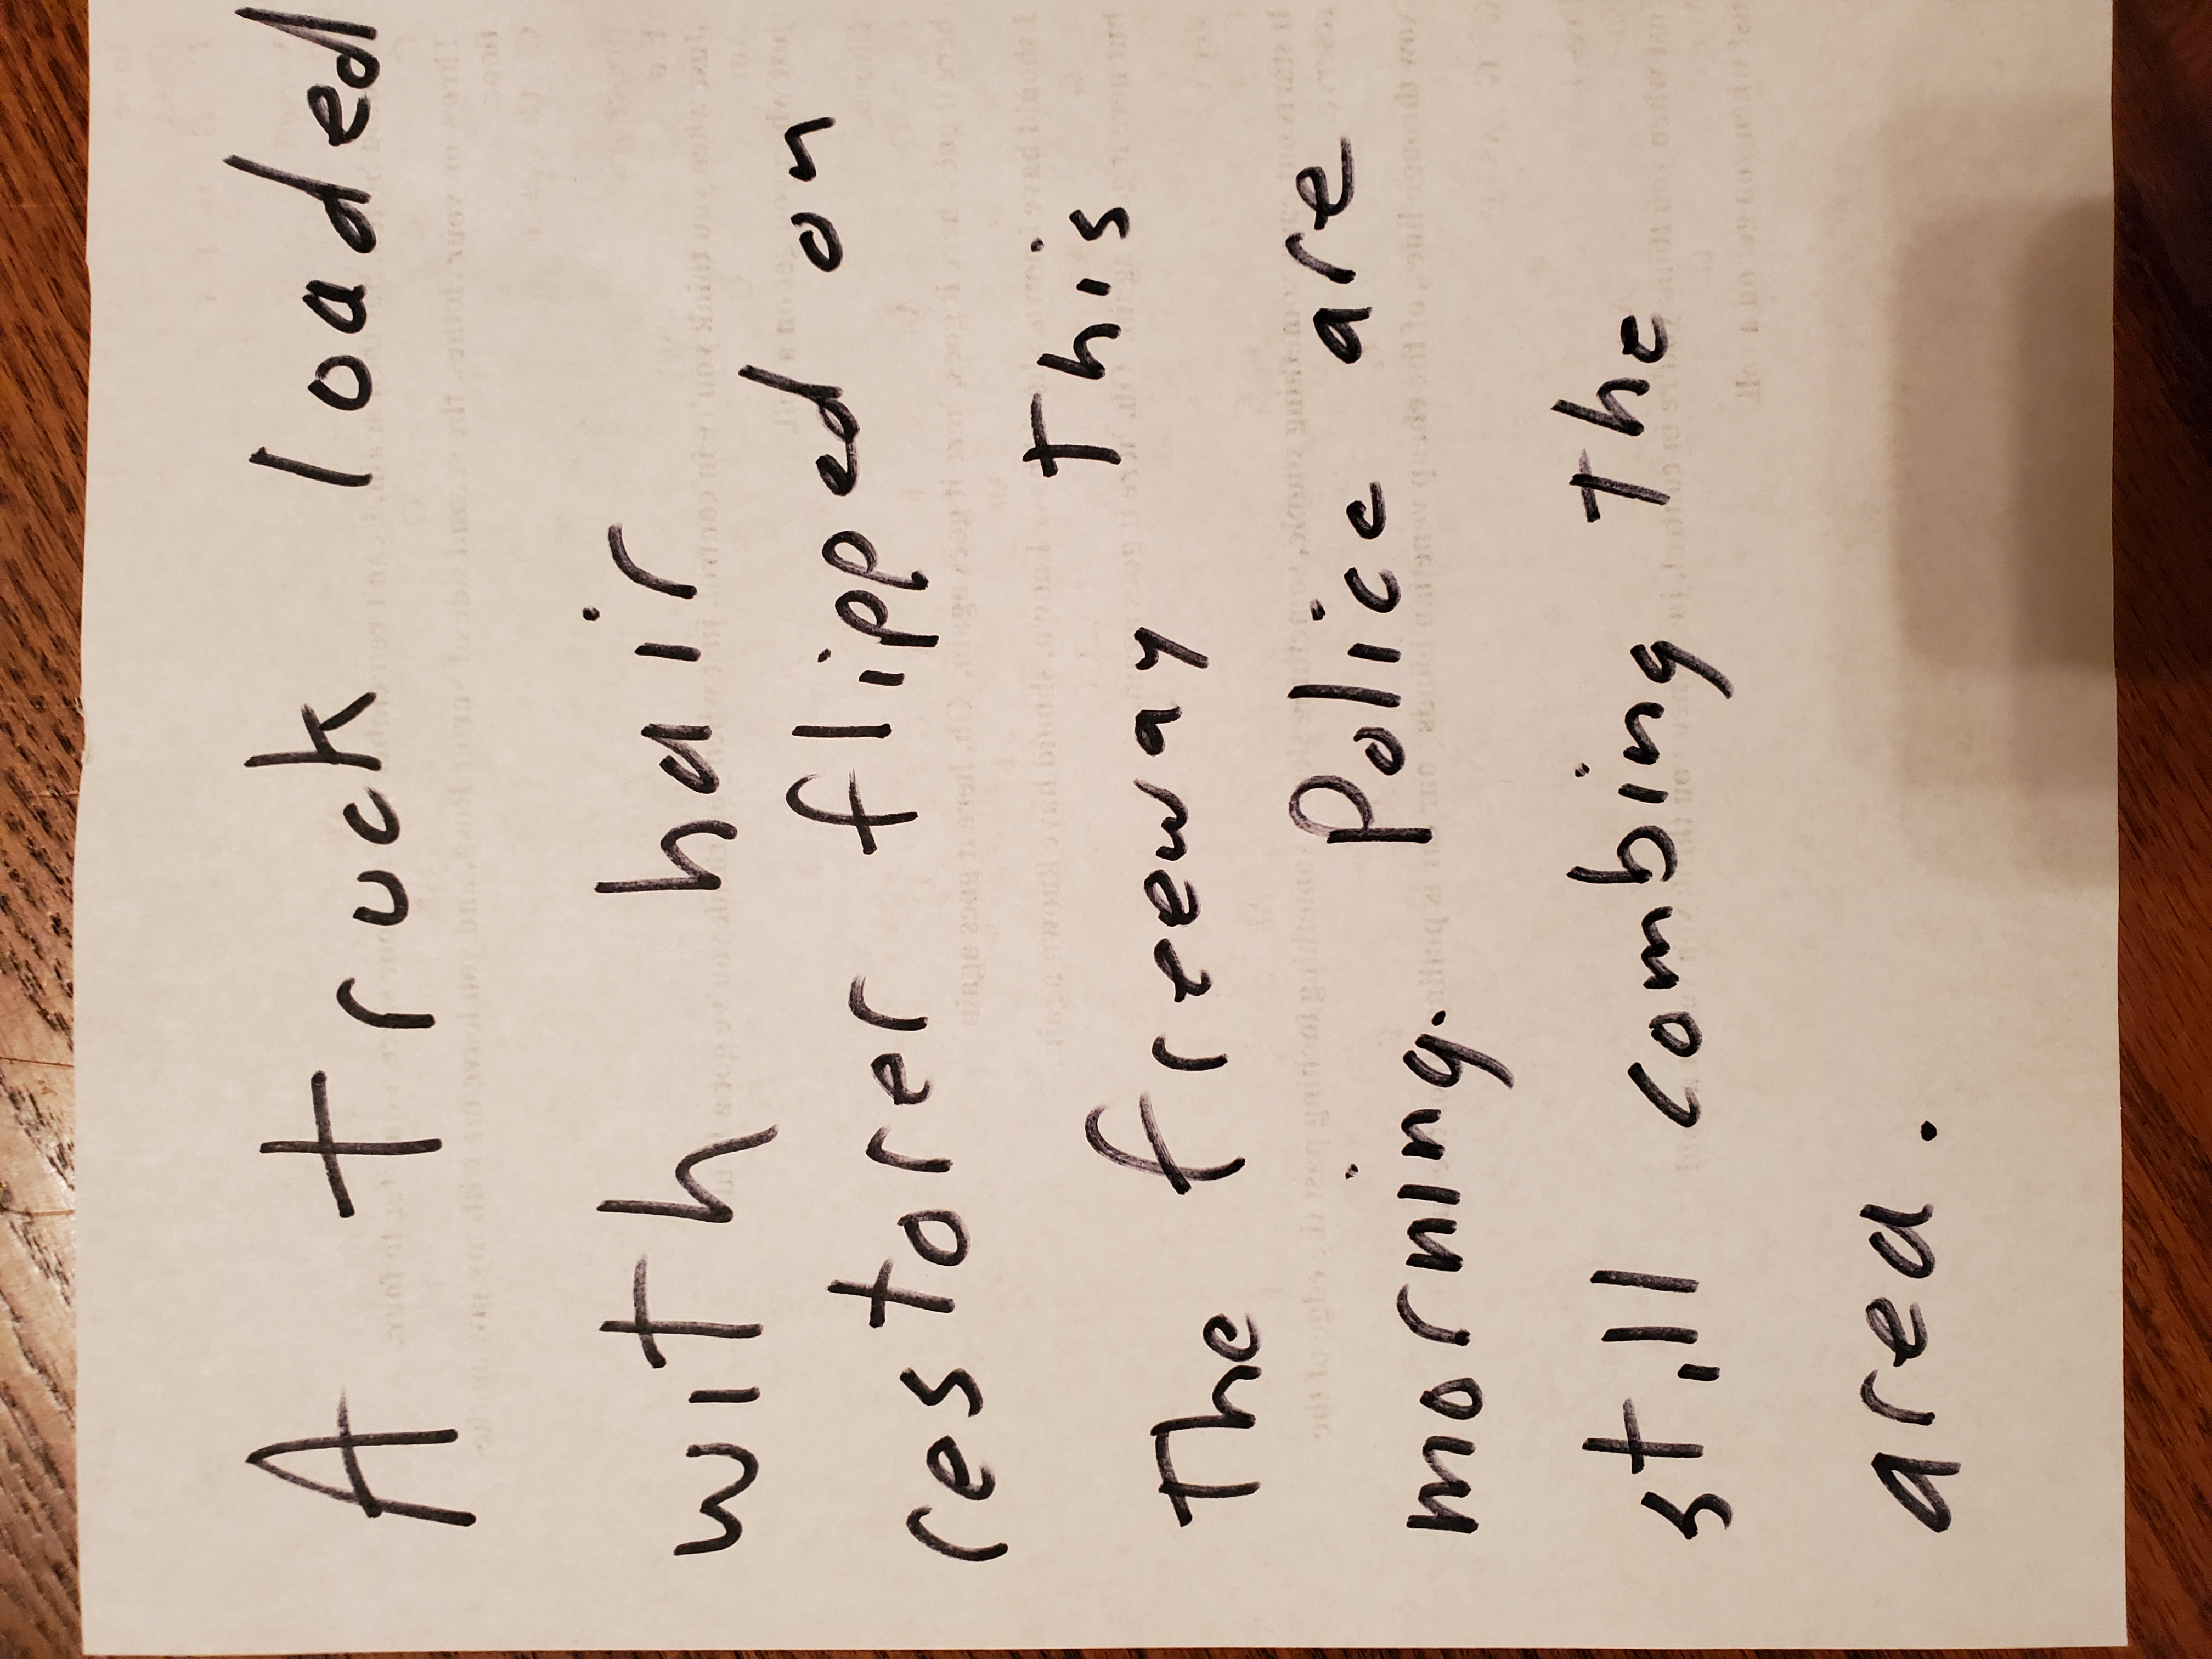 A truck loaded
with hair
restorer flipped on
The freeway this
morning. Police are
still combing the
area.